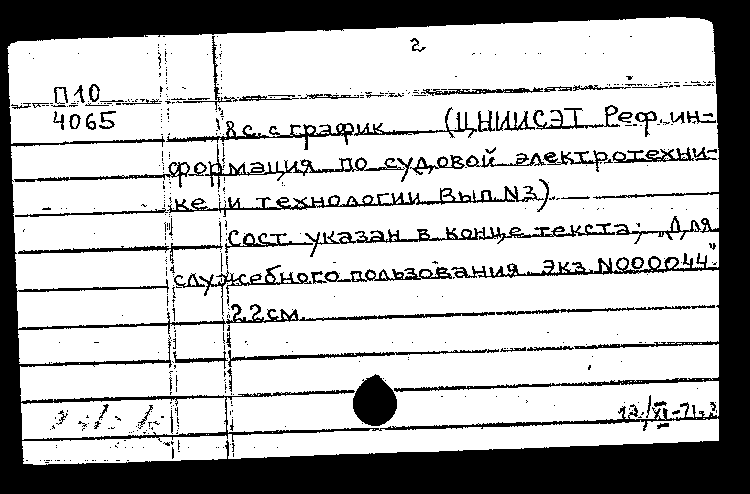 2
П10
4065
8 с. с график (ЦНИИСЭТ Реф. ин-
формация по судовой электротехни-
ке и технологии Вып. N3)
Сост. указан в конце текста; „Для
служебного пользования. Экз. N000044."
22 см.